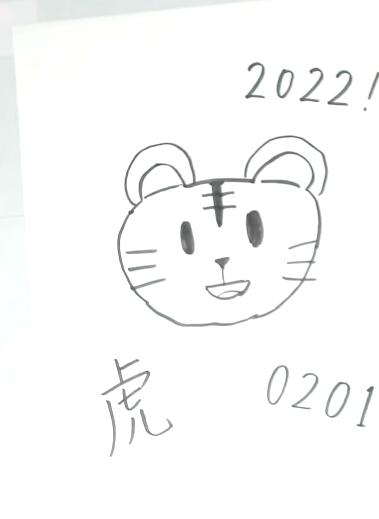 2022!
虎
0201